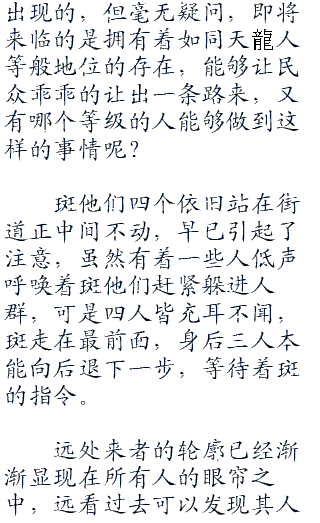 出现的，但毫无疑问，即将
来临的是拥有着如同天龍人
等般地位的存在，能够让民
众乖乖的让出一条路来，又
有哪个等级的人能够做到这
样的事情呢？
斑他们四个依旧站在街
道正中间不动，早已引起了
注意，虽然有着一些人低声
呼唤着斑他们赶紧躲进人
群，可是四人皆充耳不闻，
斑走在最前面，身后三人本
能向后退下一步，等待着斑
的指令。
远处来者的轮廓已经渐
渐显现在所有人的眼帘之
中，远看过去可以发现其人